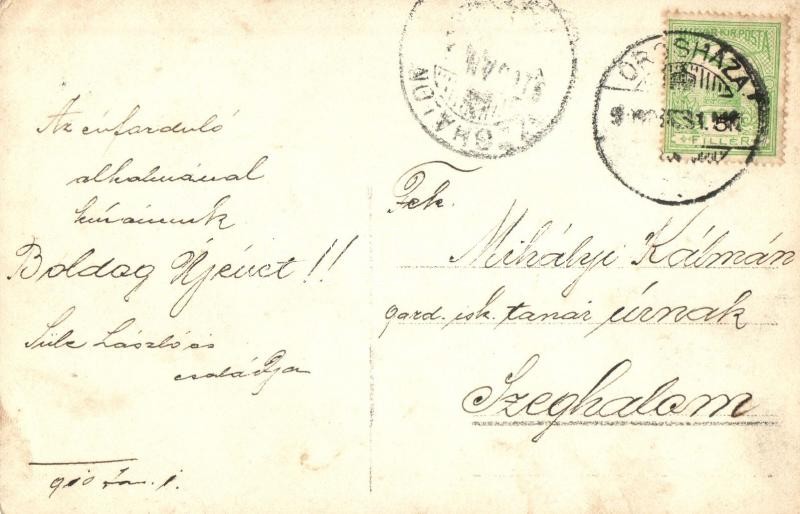 Az évforduló
alkalmával
kívánunk
Boldog Újévet!!
László és
családja
910 Jan. 1.
MAGYAR KIR. POSTA
FILLÉR
OROSHÁZA
SZEGHALOM
Tek.
Mihályi Kálmán
gazd. isk. tanár úrnak
Szeghalom